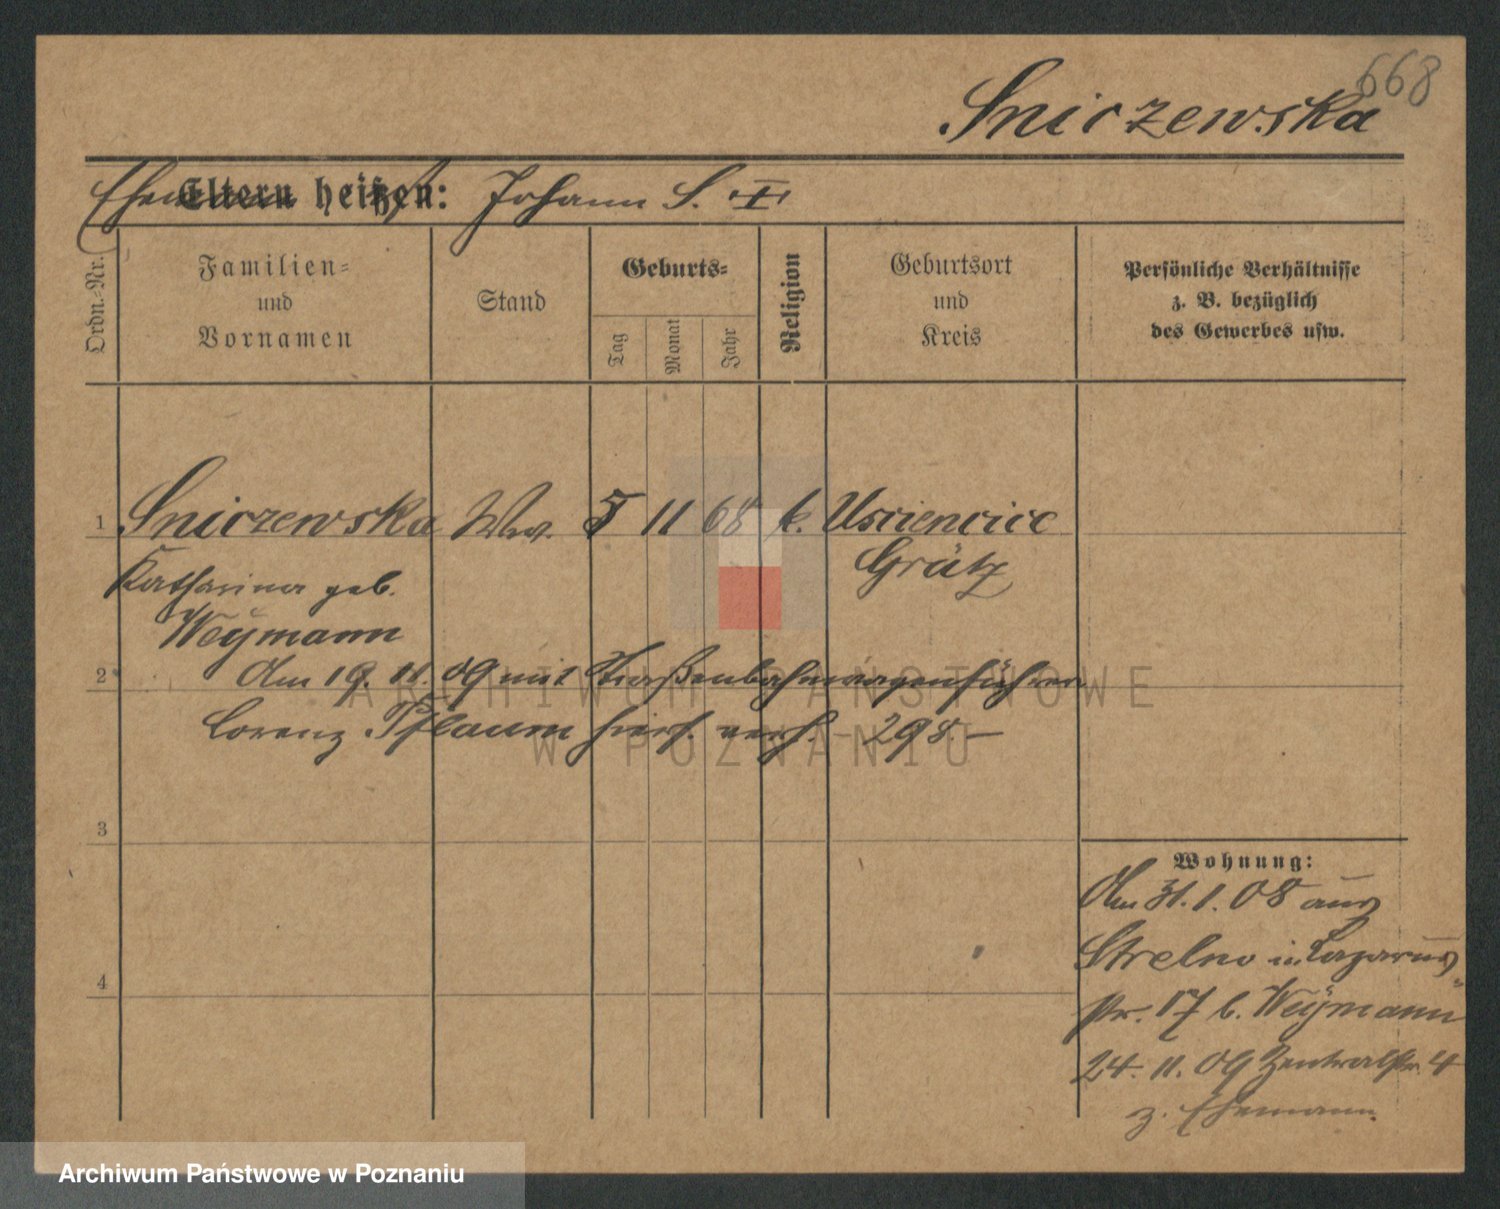 668
Sniczewska
Ehemann Eltern heißen: Johann S. †
Ordn.-Nr.
Familien-
und
Vornamen
Stand
Geburts-
Tag
Monat
Jahr
Religion
Geburtsort
und
Kreis
Persönliche Verhältnisse
z. B. bezüglich
des Gewerbes usw.
1 Sniczewska Ww. 5 11 68 k. Usciencice
Grätz
Katharina geb.
Weÿmann
2
Am 19. 11. 09 mit Straßenbahnwagenführer
Lorenz Pflaum hier verh. 298.–
3
4
Wohnung:
Am 31. 1. 08 aus
Strelno in Lazarus
str. 17 b. Weÿmann
24. 11. 09 Zentralstr. 4
z. Ehemann.
ARCHIWUM PAŃSTWOWE
W POZNANIU
Archiwum Państwowe w Poznaniu